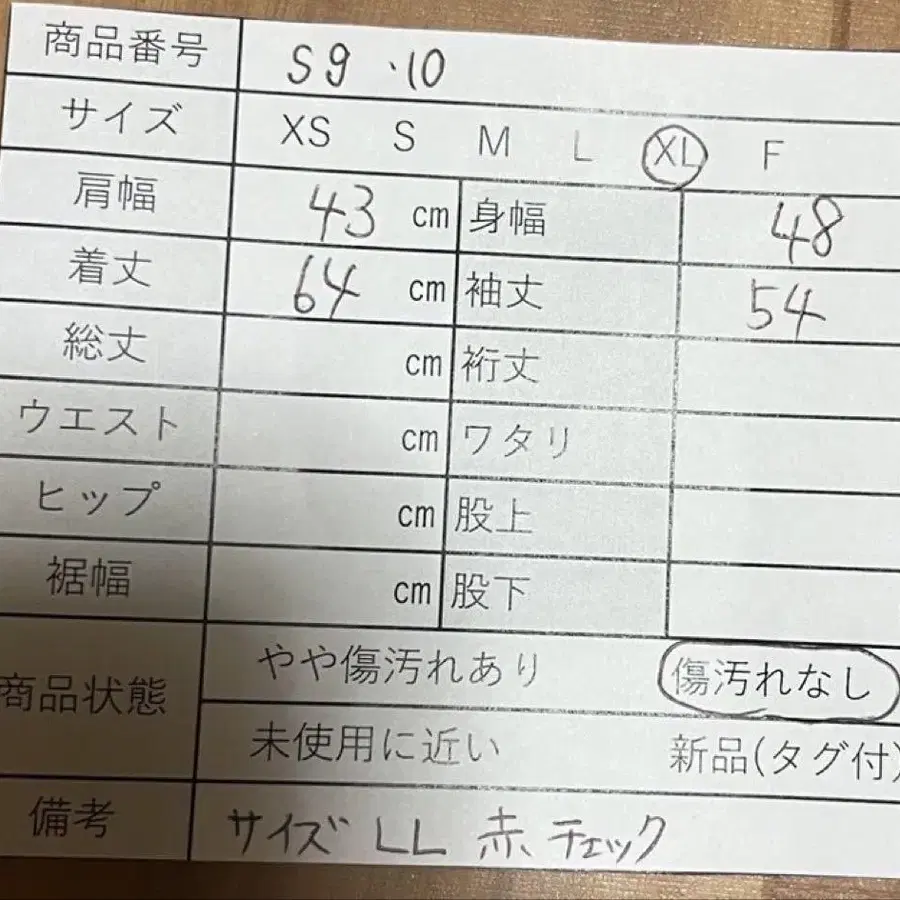 商品番号 S9 ・10
サイズ XS S M L XL F
肩幅 43 cm 身幅 48
着丈 64 cm 袖丈 54
総丈 cm 裄丈
ウエスト cm ワタリ
ヒップ cm 股上
裾幅 cm 股下
商品状態 やや傷汚れあり 傷汚れなし
未使用に近い 新品(タグ付)
備考 サイズ LL 赤、チェック